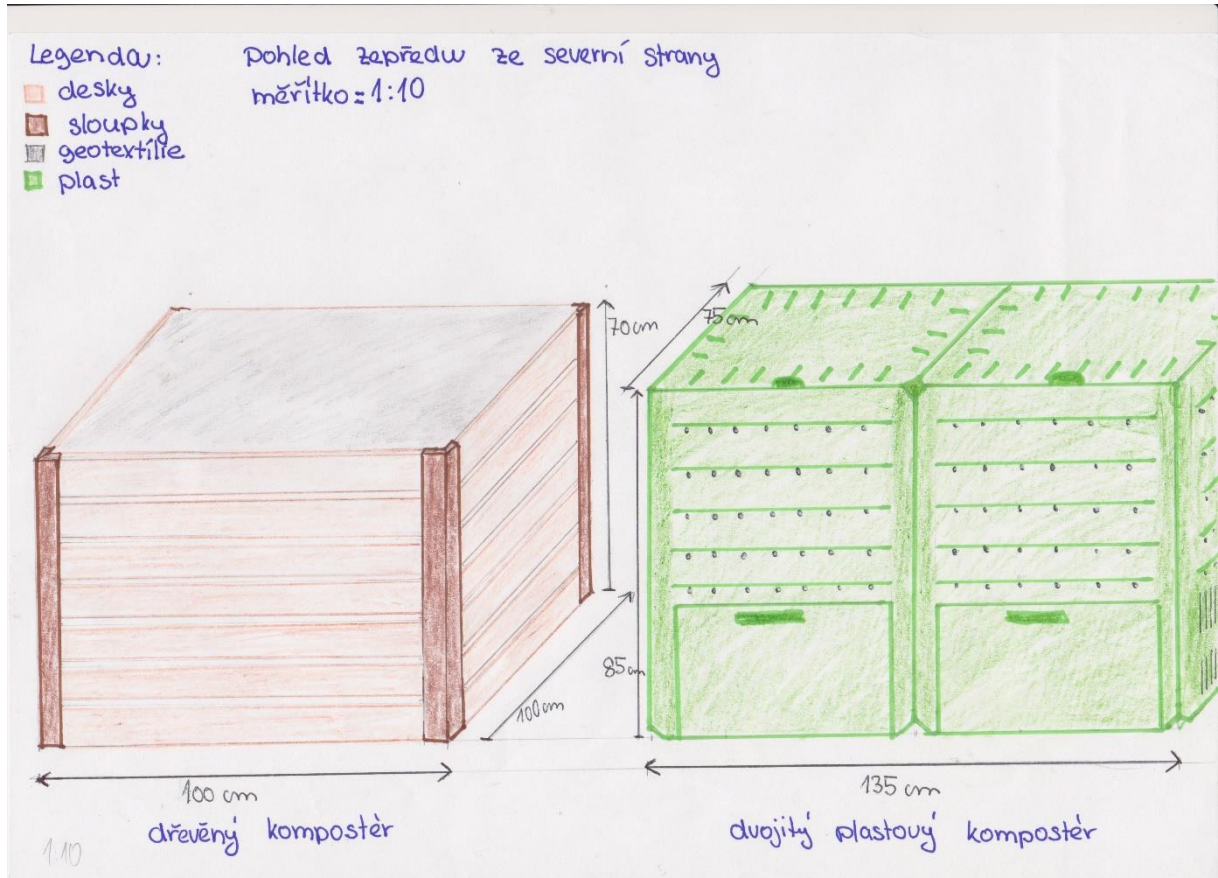 Legenda:
desky
sloupky
geotextílie
plast
Pohled zepředu ze severní strany
měřítko = 1:10
70 cm
75 cm
85 cm
100 cm
100 cm
135 cm
dřevěný kompostér
dvojitý plastový kompostér
1:10